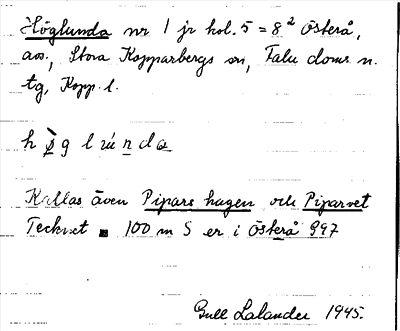 Höglunda nr 1 jr kol. 5 = 8² Österå,
aos., Stora Kopparbergs sn, Falu doms. n.
tg, Kopp. l.
h ø̀ g l ú n d a
Kallas även Pipars hagen och Piparvet
Tecknet ■ 100 m S er i Österå 997
Gull Lalander 1945.